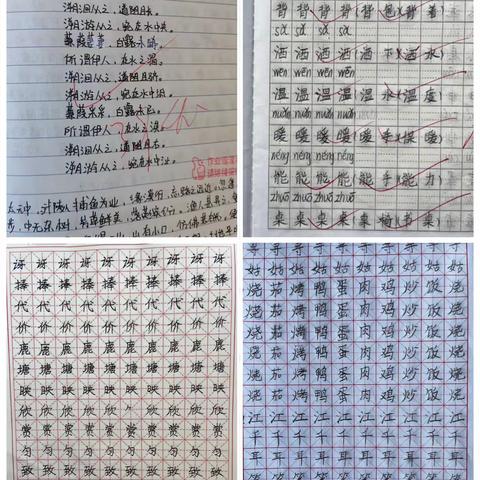 溯洄从之，道阻且长。
溯游从之，宛在水中央。
蒹葭萋萋，白露未晞。
所谓伊人，在水之湄。
溯洄从之，道阻且跻。
溯游从之，宛在水中坻。
蒹葭采采，白露未已。
所谓伊人，在水之涘。
溯洄从之，道阻且右。
溯游从之，宛在水中沚。
太元中，武陵人捕鱼为业，缘溪行，忘路之远近。忽逢
步，中无杂树，芳草鲜美，落英缤纷，渔人甚异之
背 背 背 背 (背 包)(背 着)
sǎ sǎ sǎ
洒 洒 洒 洒 (洒 下)(洒 水)
wēn wēn wēn
温 温 温 温 (温 水)(温 度)
nuǎn nuǎn nuǎn
暖 暖 暖 暖 (暖 手)(保 暖)
néng néng néng
能 能 能 能 (能 手)(能 力)
zhuō zhuō zhuō
桌 桌 桌 桌
讶 讶 讶 讶 讶 讶 讶 讶 讶
捧 捧 捧 捧 捧 捧 捧 捧 捧
代 代 代 代 代 代 代 代 代
价 价 价 价 价 价 价 价 价
鹿 鹿 鹿 鹿 鹿 鹿 鹿 鹿 鹿
塘 塘 塘 塘 塘 塘 塘 塘 塘
映 映 映 映 映 映 映 映 映
欣 欣 欣 欣 欣 欣 欣 欣 欣
赏 赏 赏 赏 赏 赏 赏 赏 赏
匀 匀 匀 匀 匀 匀 匀 匀 匀
致 致 致 致 致 致 致 致 致
姑 姑 姑 姑 姑 姑 姑 姑 姑 姑
烧 茄 烤 鸭 蛋 肉 鸡 炒 饭 烧
烧 茄 烤 鸭 蛋 肉 鸡 炒 饭 烧
烧 茄 烤 鸭 蛋 肉 鸡 炒 饭 烧
烧 茄 烤 鸭 蛋 肉 鸡 炒 饭 烧
烧 茄 烤 鸭 蛋 肉 鸡 炒 饭 烧
烧 茄 烤 鸭 蛋 肉 鸡 炒 饭 烧
江 江 江 江 江 江 江 江 江 江
千 千 千 千 千 千 千 千 千 千
耳 耳 耳 耳 耳 耳 耳 耳 耳 耳